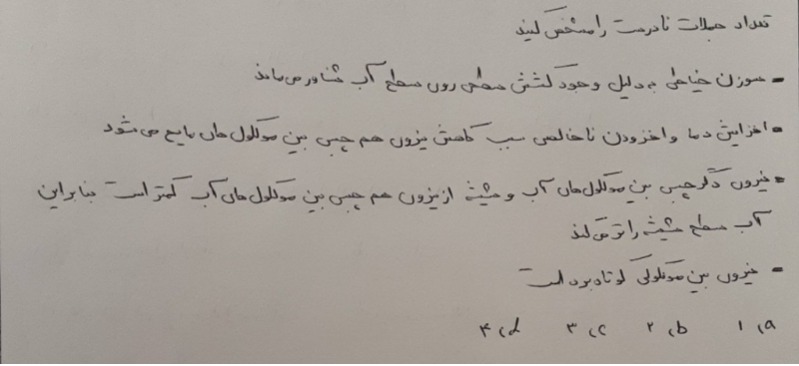 تعداد جملات نادرست را مشخص کنید
- سوزن خیاطی به دلیل وجود کشش سطحی روی سطح آب شناور می‌ماند
- افزایش دما و افزودن ناخالصی سبب کاهش نیروی هم چسبی بین مولکول های مایع می شود
- نیروی دگرچسبی بین مولکول های آب و شیشه از نیروی هم چسبی بین مولکول های آب کمتر است بنابراین
آب سطح شیشه را تر می کند
- نیروی بین مولکولی کوتاه برد است
a) ۱ b) ۲ c) ۳ d) ۴